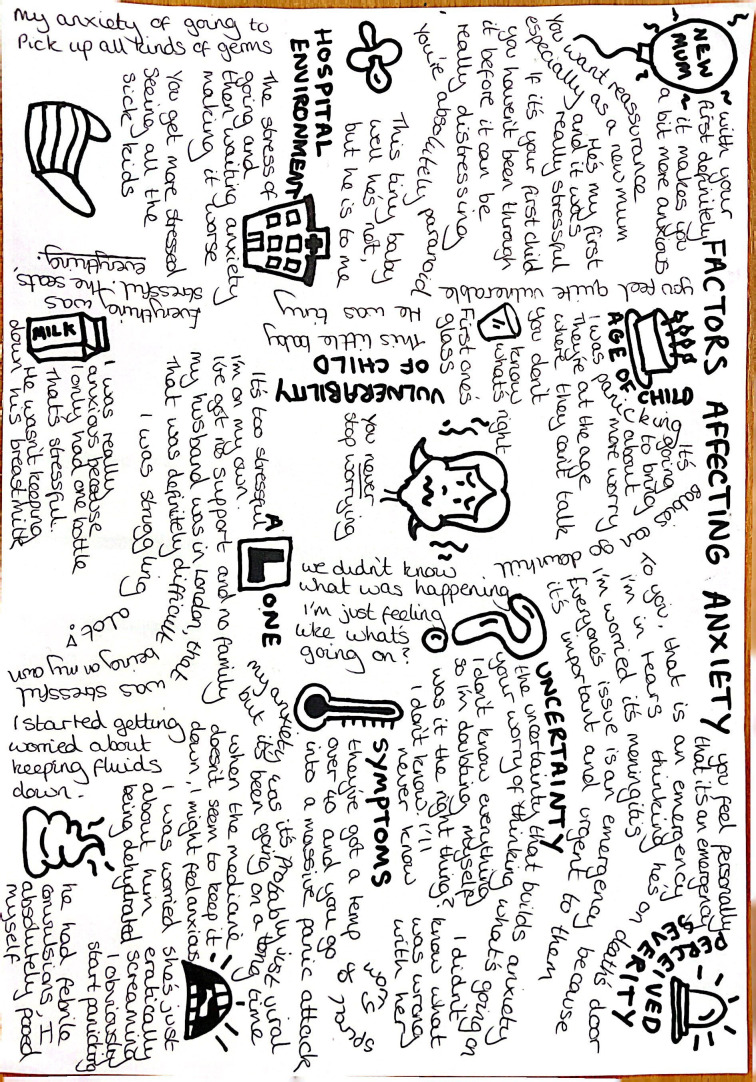 FACTORS AFFECTING ANXIETY
NEW
MUM
~ with your
first definitely
it makes you
a bit more anxious
you want reassurance
as a new mum
He's my first
especially and it was
really stressful
If it's your first child
you haven't been through
it before it can be
really distressing
you're absolutely paranoid
This tiny baby
well he's not,
but he is to me
HOSPITAL
ENVIRONMENT
My anxiety of going to
Pick up all kinds of germs
The stress of
going and
then waiting anxiety
making it worse
You get more stressed
seeing all the
sick kids
Everything was
stressful. The seats.
everything.
AGE OF CHILD
It's babies
I was panicking going
back to bring
more worry about
They're at the age
where they can't talk
you don't
know
what's
right
First ones
glass
VULNERABILITY
OF CHILD
you feel quite vulnerable
He was tiny
This little baby
You never
stop worrying
MILK
I was really
anxious because
I only had one bottle
That's stressful.
He wasn't keeping
down his breastmilk
ALONE
It's too stressful
I'm on my own.
I've got no support and no family
my husband was in London, that
That was definitely difficult
I was struggling alot!
was stressful being on my own
PERCEIVED
SEVERITY
you feel personally
that it's an emergency
To you, that is an emergency
I'm in tears thinking he's on death's door
I'm worried it's meningitis
Everyone's issue is an emergency because
it's important and urgent to them
UNCERTAINTY
the uncertainty that builds anxiety
your worry of thinking what's going on
I don't know everything
so I'm doubting myself
was it the right thing?
I don't know. I'll
never know
I didn't
know what
was wrong
with her
we didn't know
what was happening
I'm just feeling
like what's
going on?
SYMPTOMS
they've got a temp of
over 40 and you go
into a massive panic attack
spiral
worry
my anxiety was it's probably just viral
but it's been going on a long time
when the medicine
doesn't seem to keep it
down, I might feel anxious
I was worried
about him
being dehydrated
she's just
erratically
screaming
I obviously
start panicking
I started getting
worried about
keeping fluids
down.
he had febrile
convulsions, I
absolutely pooed
myself